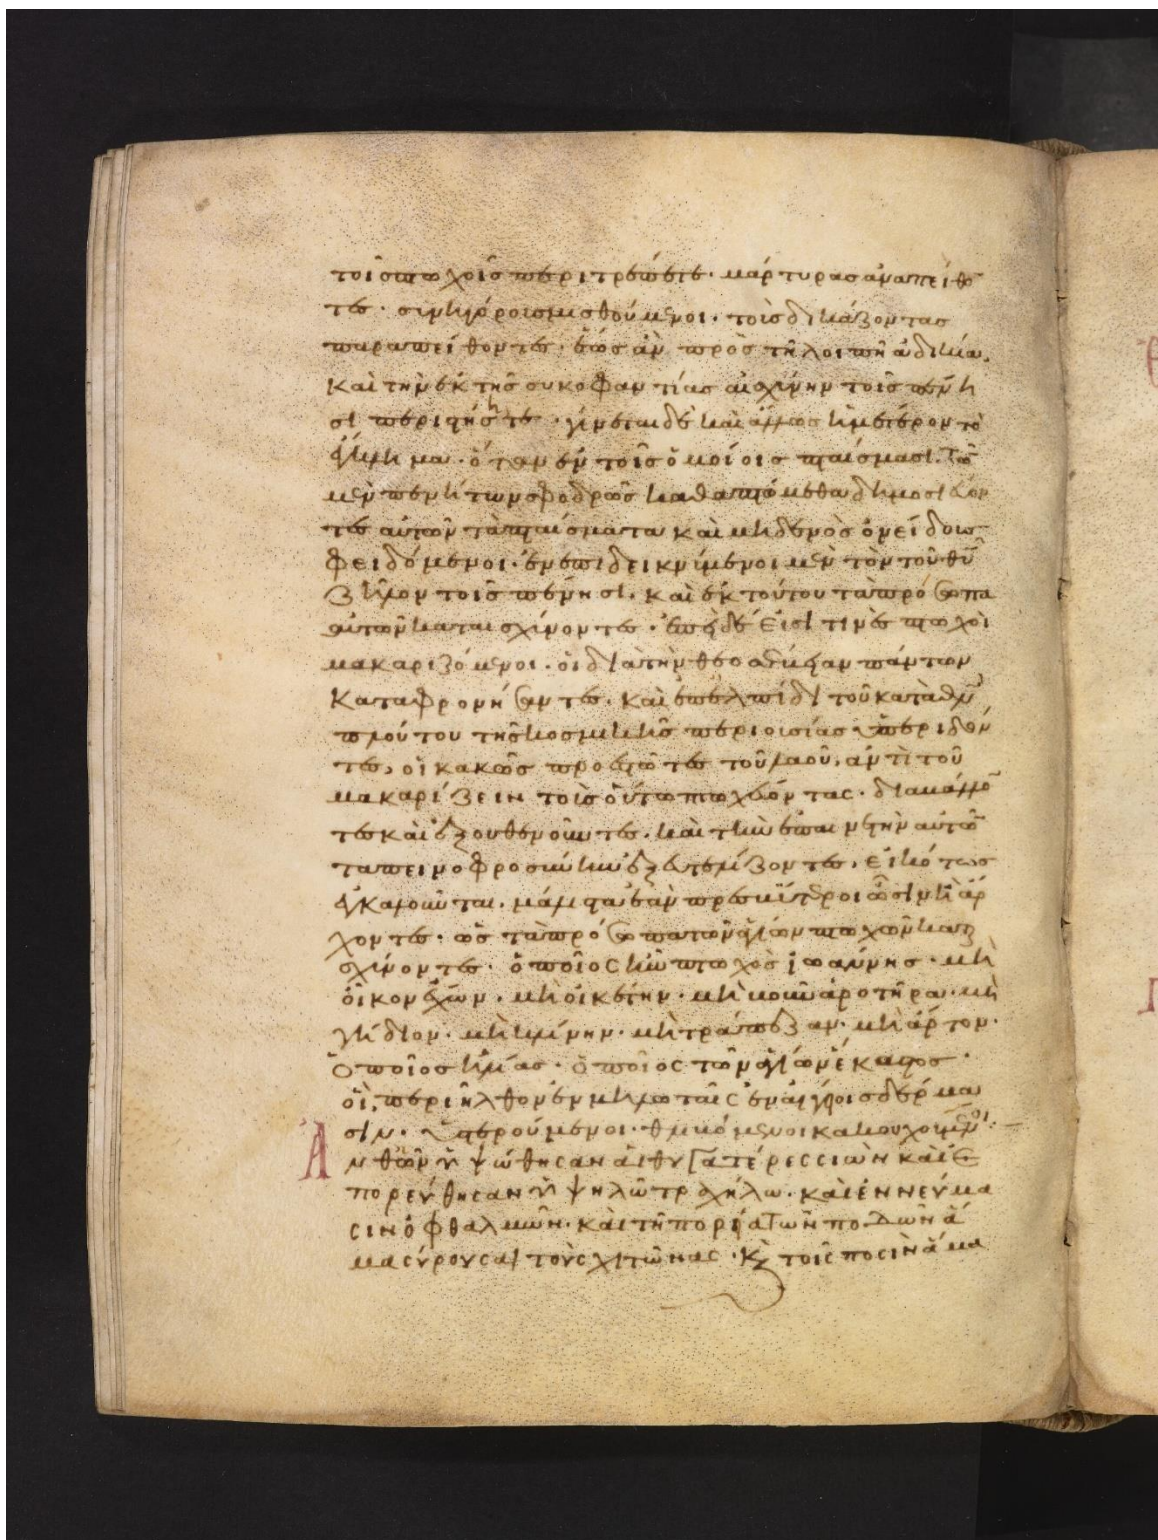 τοῖς πτωχοῖς περιτρέψετε· μάρτυρας ἀναπείθον
τες· συνηγόροις μισθούμενοι· τοῖς δικάζοντας
παραπείθοντες· ἕως ἂν πρὸς τῇ λοιπῇ ἀδικία,
καὶ τὴν ἐκ τῆς συκοφαντίας αἰσχύνην τοῖς πένη
σι περιτήσητε· γίνεται δὲ καὶ ἄλλως ἡμέτερον τὸ
ἔγκλημα· ὅταν ἐν τοῖς ὁμοίοις πταίσμασι. Τῶν
μὲν πενήτων σφοδρῶς καθαπτόμεθα δημοσιεύον
τες αὐτῶν τὰ πταίσματα καὶ μηδενὸς ὀνείδους
φειδόμενοι· ἐνεπιδεικνύμενοι μὲν τὸν τοῦ θυ
ζῆλον τοῖς πένησι. καὶ ἐκ τούτου τὰ πρόσωπα
αὐτῶν καταισχύνοντες· ἐπεὶ δέ εἰσί τινες πτωχοὶ
μακαριζόμενοι· οἱ διὰ τὴν θεοσέβειαν πάντων
καταφρονήσαντες. καὶ ἐπ' ἐλπίδι τοῦ κατὰ θν
πλούτου τῆς κοσμικῆς περιουσίας ὑπεριδόν
τες, οἱ κακῶς προεστῶτες τοῦ λαοῦ, ἀντὶ τοῦ
μακαρίζειν τοὺς οὕτω πτωχεύοντας· διαβάλλον
τες καὶ ἐξουθενοῦντες. καὶ τὴν ἐπαινετὴν αὐτῶν
ταπεινοφροσύνην ἐξευτελίζοντες, εἰκότως
ἐγκαλοῦνται. μάλιστα ἐὰν πρεσβύτεροι ὦσιν ἢ ἄρ
χοντες· ὡς τὰ πρόσωπα τῶν ἁγίων πτωχῶν καται
σχύνοντες· ὁποῖος ἦν πτωχὸς ἰωάννης· μὴ
οἶκον ἔχων· μὴ οἰκέτην· μὴ βοῦν ἀροτῆρα· μὴ
γήδιον· μὴ κλίνην· μὴ τράπεζαν· μὴ ἄρτον·
Ὁποῖος ἡλίας· ὁποῖος τῶν ἁγίων ἕκαστος·
οἳ, περιῆλθον ἐν μηλωταῖς ἐν αἰγείοις δέρμα
σιν· ὑστερούμενοι· θλιβόμενοι κακουχούμενοι:
Ἀνθ' ὧν ὑψώθησαν αἱ θυγατέρες σιὼν καὶ ἐ
πορεύθησαν ὑψηλῶ τραχήλω· καὶ ἐν νεύμα
σιν ὀφθαλμῶν· καὶ τῇ πορεία τῶν ποδῶν ἅ
μα σύρουσαι τοὺς χιτῶνας· κ τοῖς ποσὶν ἅμα